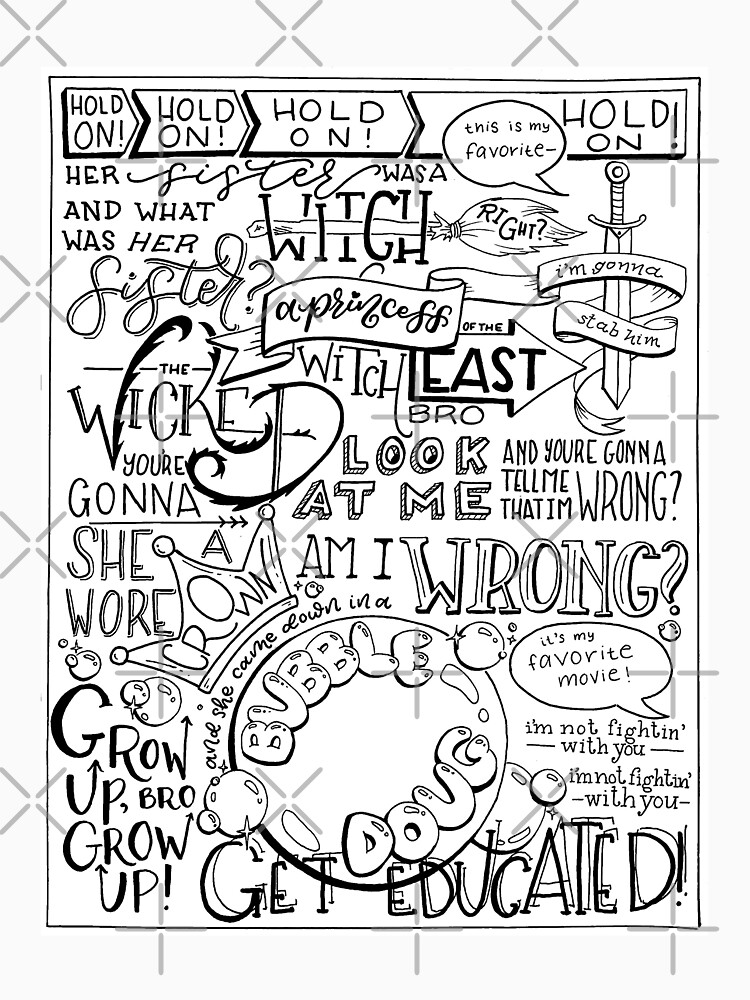 HOLD ON! HOLD ON! HOLD ON! HOLD ON!
this is my favorite-
HER sister WAS A
WITCH
RIGHT?
AND WHAT
WAS HER
sister?
a princess
i'm gonna
stab him
THE
WICKED
WITCH
OF THE
EAST
BRO
YOURE
GONNA
LOOK
AT ME
AND YOURE GONNA
TELL ME
THAT IM WRONG?
AM I WRONG?
SHE
WORE
A
CROWN
and she came down in a
BUBBLE
DOUG
it's my
favorite
movie!
i'm not fightin'
with you
i'm not fightin'
-with you-
GROW
UP, BRO
GROW
UP!
GET EDUCATED!